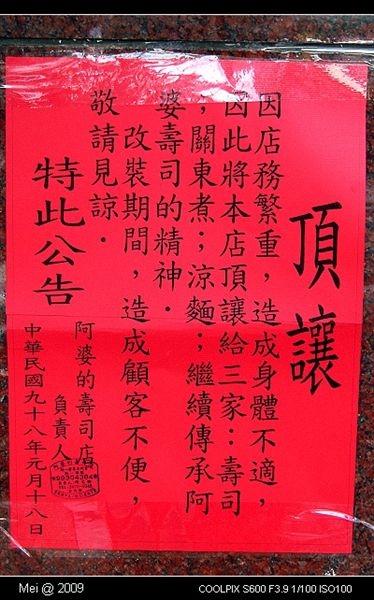 頂讓
因店務繁重，造成身體不適，
因此將本店頂讓給三家：壽司
；關東煮；涼麵；繼續傳承阿
婆壽司的精神．
改裝期間，造成顧客不便，
敬請見諒．
特此公告
阿婆的壽司店
負責人
中華民國九十八年元月十八日
Mei @ 2009
COOLPIX S600 F3.9 1/100 ISO100